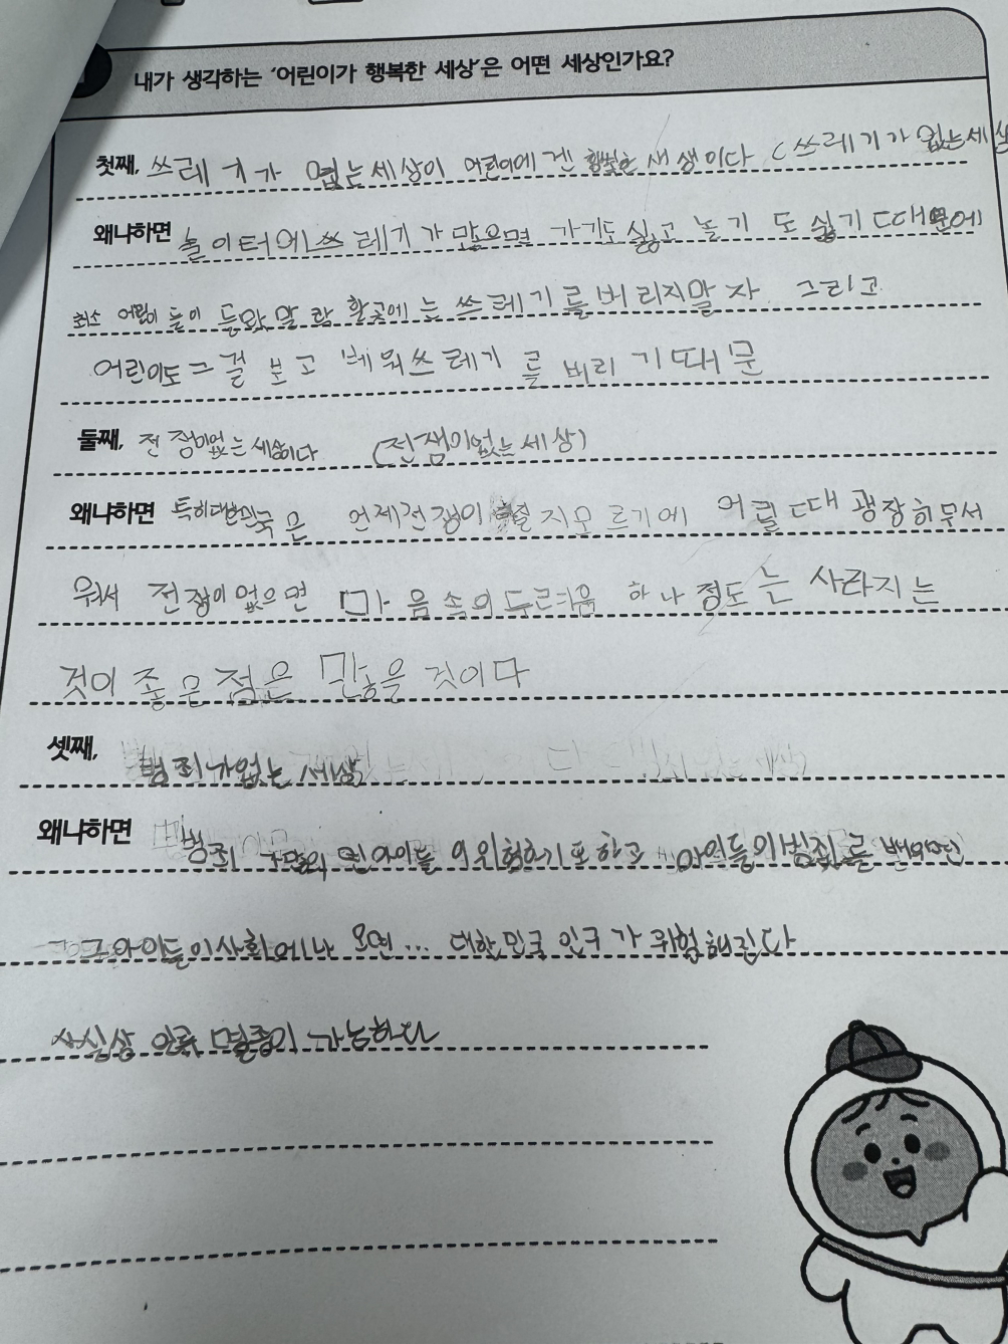 내가 생각하는 '어린이가 행복한 세상'은 어떤 세상인가요?
첫째, 쓰레기가 없는세상이 어린이에겐 행복한 세상이다 (쓰레기가 없는세상
왜냐하면 놀이터에쓰레기가 많으면 가기도싫고 놀기 도 싫기 때문에
최소 어린이 들이 등략 할곳에는 쓰레기를버리지말자 그리고
어린이도 그걸 보고 베워쓰레기를 버리기때문
둘째, 전쟁이없는세상이다 (전쟁이없는세상)
왜냐하면 특히대한민국은 언제전쟁이 지모르기에 어릴때 굉장히무서
워서 전쟁이없으면 마음속의두려움 하나정도는 사라지는
것이 좋은점은 많을 것이다
셋째, 범죄가없는 세상
왜냐하면 범죄 아이들 위험하기도하고 아이들이범죄를 배우면
그아이들이사회에나 오면... 대한민국 인구가 위험해진다
사실상 인류 멸종이 가능하다